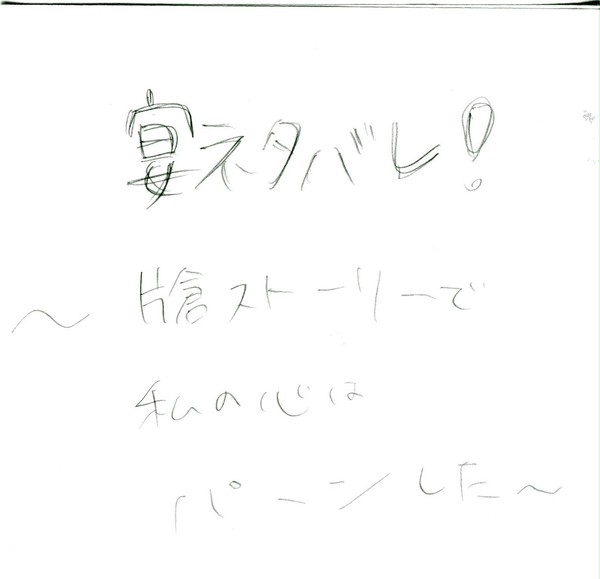 宴ネタバレ!
～片倉ストーリーで
私の心は
パーンした～